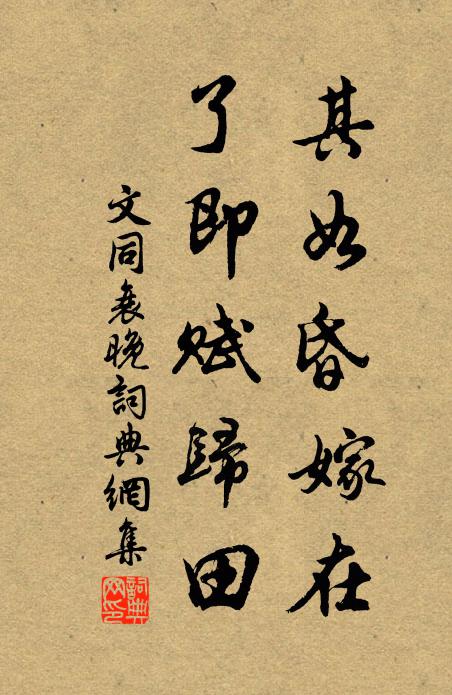 其如昏嫁在
了即賦歸田
文同衰晚詞典網集
詞典網印